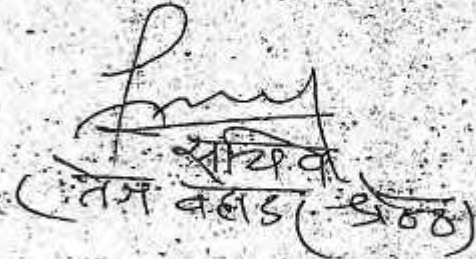 सचिव
(तेज बहाडर श्रेष्ठ)